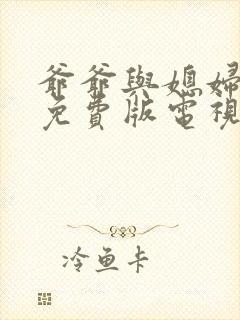 爺爺與媳婦
免費版電視
冷鱼卡